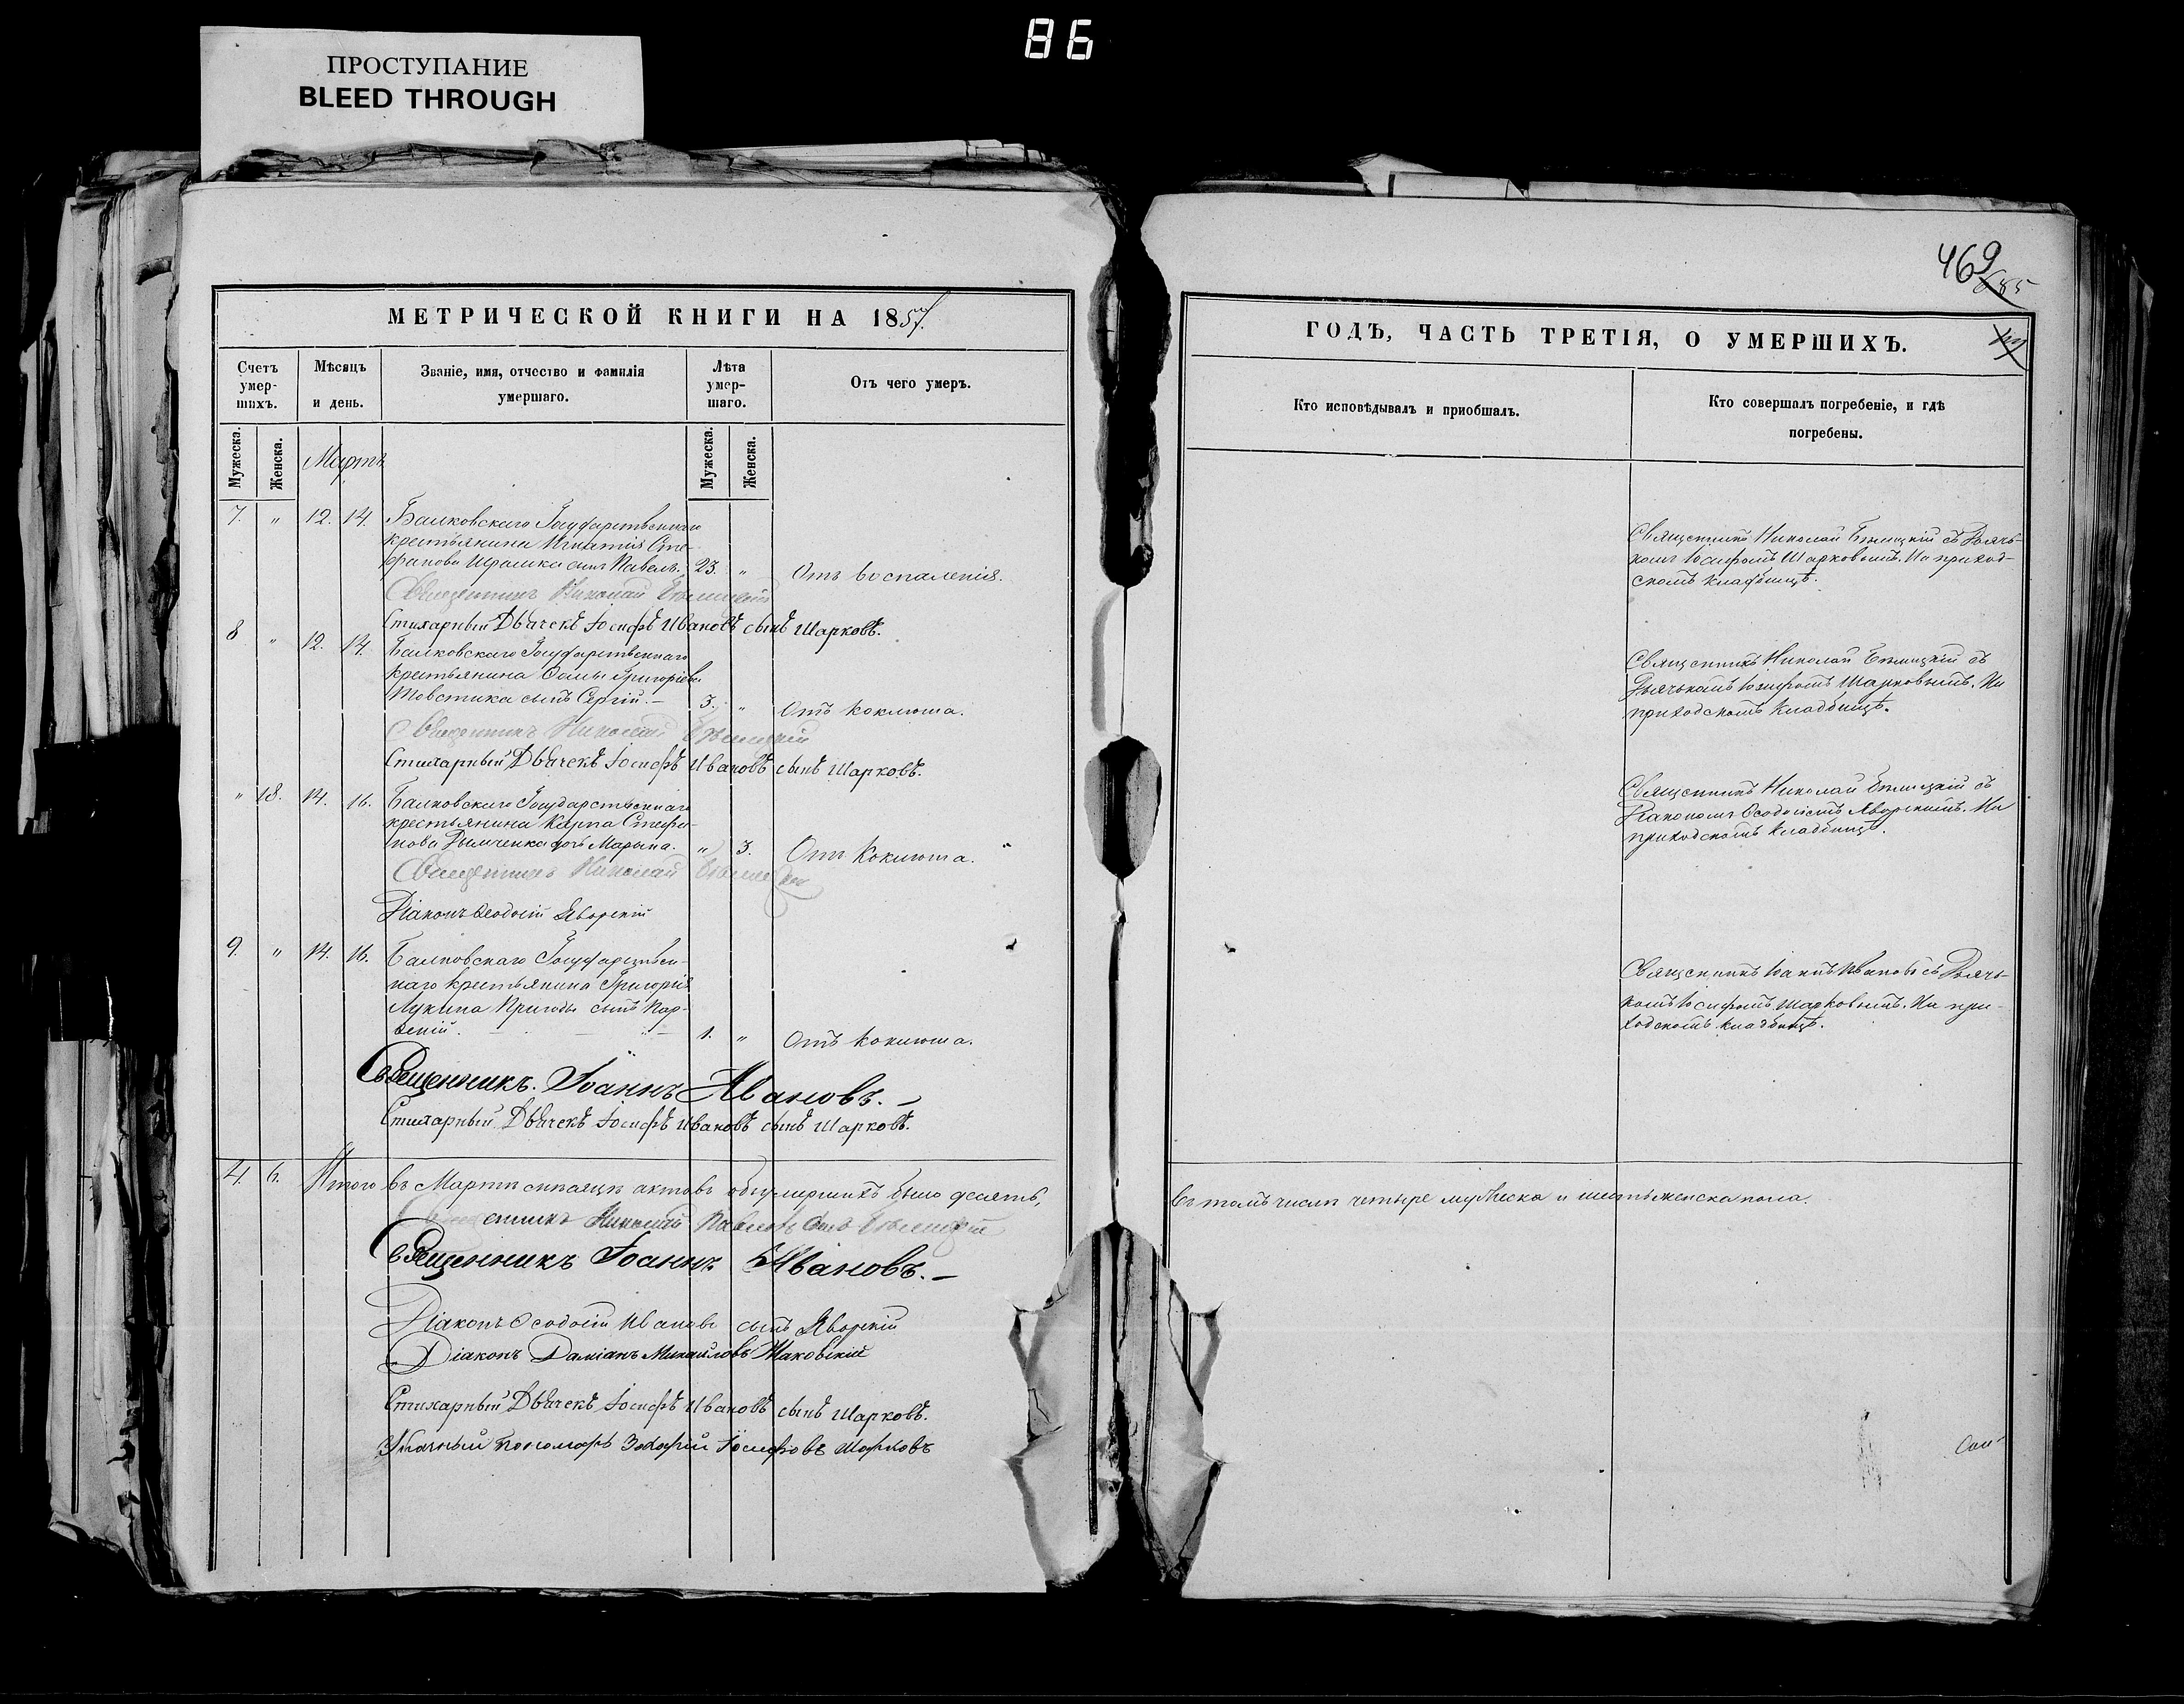 86
ПРОСТУПАНИЕ
BLEED THROUGH
МЕТРИЧЕСКОЙ КНИГИ НА 1857.
Счетъ умер-шихъ.
Мѣсяцъ и день.
Званіе, имя, отчество и фамилія умершаго.
Лѣта умер-шаго.
Отъ чего умеръ.
Мужеска.
Женска.
Мужеска.
Женска.
Мартъ
7. " 12. 14. Балковскаго Государственнаго
крестьянина Игнатія Сте-
фанова сынъ Павелъ. 23. " Отъ воспаленія.
Священникъ Николай Бѣлицкій
Стихарный Дьячекъ Іосифъ Ивановъ сынъ Шарковъ.
8 " 12. 14. Балковскаго Государственнаго
крестьянина Ѳомы Григоріева
Товстика сынъ Сергій. – 3. " Отъ коклюша.
Священникъ Николай Бѣлицкій
Стихарный Дьячекъ Іосифъ Ивановъ сынъ Шарковъ.
" 18. 14. 16. Балковскаго Государственнаго
крестьянина Карпа Стефа-
нова Дымченка дочь Марѳа. " 3. Отъ Коклюша.
Священникъ Николай Бѣлицкій
Діаконъ Ѳеодосій Яворскій
9. " 14. 16. Балковскаго Государствен-
наго крестьянина Григорія
Лукина Пригоды сынъ Пар-
ѳеній. 1. " Отъ коклюша.
Священникъ. Іоаннъ Ивановъ. –
Стихарный Дьячекъ Іосифъ Ивановъ сынъ Шарковъ.
4. 6. Итого въ Мартѣ мѣсяцѣ актовъ объ умершихъ было десять,
Священникъ Николай Павловъ сынъ Бѣлицкій
Священникъ Іоаннъ Ивановъ. –
Діаконъ Ѳеодосій Ивановъ сынъ Яворскій
Діаконъ Даміанъ Михайловъ Маковскій
Стихарный Дьячекъ Іосифъ Ивановъ сынъ Шарковъ.
Указный Пономарь Захарій Іосифовъ Шарковъ
469
685
ГОДЪ, ЧАСТЬ ТРЕТІЯ, О УМЕРШИХЪ.
Кто исповѣдывалъ и приобщалъ.
Кто совершалъ погребеніе, и гдѣ погребены.
Священникъ Николай Бѣлицкій съ Дьяч-
комъ Іосифомъ Шарковымъ. На приход-
скомъ кладбищѣ.
Священникъ Николай Бѣлицкій съ
Дьячкомъ Іосифомъ Шарковымъ. На
приходскомъ кладбищѣ.
Священникъ Николай Бѣлицкій съ
Діакономъ Ѳеодосіемъ Яворскимъ. На
приходскомъ кладбищѣ.
Священникъ Іоаннъ Ивановъ съ Дьяч-
комъ Іосифомъ Шарковымъ. На при-
ходскомъ кладбищѣ.
въ томъ числѣ четыре мужеска и шесть женска пола.